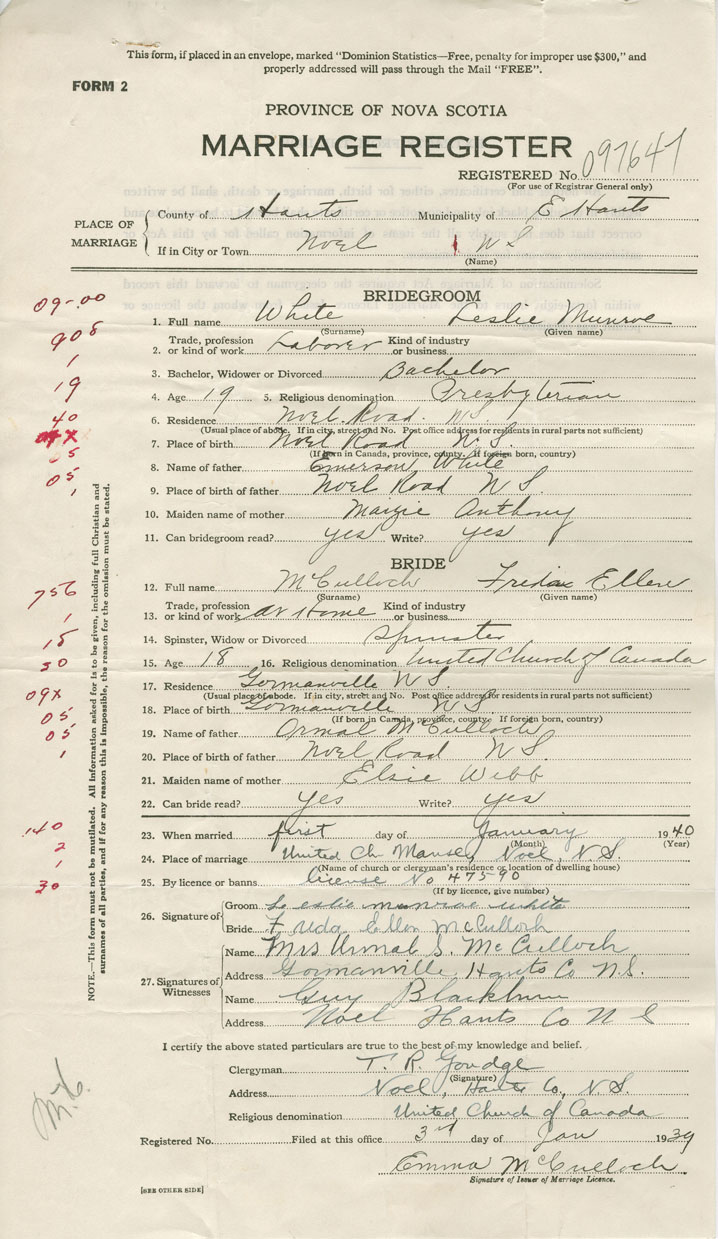 This form, if placed in an envelope, marked "Dominion Statistics—Free, penalty for improper use $300," and
properly addressed will pass through the Mail "FREE".
FORM 2
PROVINCE OF NOVA SCOTIA
MARRIAGE REGISTER
REGISTERED No. 097647
(For use of Registrar General only)
PLACE OF MARRIAGE
County of Hants Municipality of E Hants
If in City or Town Noel N S
(Name)
BRIDEGROOM
1. Full name White Leslie Munroe
(Surname) (Given name)
2. Trade, profession or kind of work Laborer Kind of industry or business
3. Bachelor, Widower or Divorced Bachelor
4. Age 19 5. Religious denomination Presbyterian
6. Residence Noel Road. N S
(Usual place of abode. If in city, street and No. Post office address for residents in rural parts not sufficient)
7. Place of birth Noel Road N S.
(If born in Canada, province, county. If foreign born, country)
8. Name of father Emerson White
9. Place of birth of father Noel Road N S.
10. Maiden name of mother Anthony
11. Can bridegroom read? yes Write? yes
BRIDE
12. Full name McCulloch Ellen
(Surname) (Given name)
13. Trade, profession or kind of work At Home Kind of industry or business
14. Spinster, Widow or Divorced Spinster
15. Age 18 16. Religious denomination United Church of Canada
17. Residence Gormanville N S
(Usual place of abode. If in city, street and No. Post office address for residents in rural parts not sufficient)
18. Place of birth Gormanville N S.
(If born in Canada, province, county. If foreign born, country)
19. Name of father Ormal McCulloch
20. Place of birth of father Noel Road N S.
21. Maiden name of mother Elsie Webb
22. Can bride read? Yes Write? yes
23. When married first day of January 1940
(Month) (Year)
24. Place of marriage United Ch Manse, Noel, N.S.
(Name of church or clergyman's residence or location of dwelling house)
25. By licence or banns license No 47590
(If by licence, give number)
26. Signature of
Groom Leslie munroe white
Bride Freda Ellen McCulloch
27. Signatures of Witnesses
Name Mrs Urmal S. McCulloch
Address Gormanville Hants Co N.S.
Name Guy Blackburn
Address Noel Hants Co N S
I certify the above stated particulars are true to the best of my knowledge and belief.
Clergyman T. R. Goudge
(Signature)
Address Noel, Hants Co., N.S.
Religious denomination United Church of Canada
Registered No. Filed at this office 3rd day of Jan 1939
Emma McCulloch
Signature of Issuer of Marriage Licence.
[SEE OTHER SIDE]
NOTE.—This form must not be mutilated. All Information asked for is to be given, including full Christian and
surnames of all parties, and if for any reason this is impossible, the reason for the omission must be stated.
09-00
908
1
19
40
05
05
1
756
1
18
30
09x
05
05
1
140
2
1
30